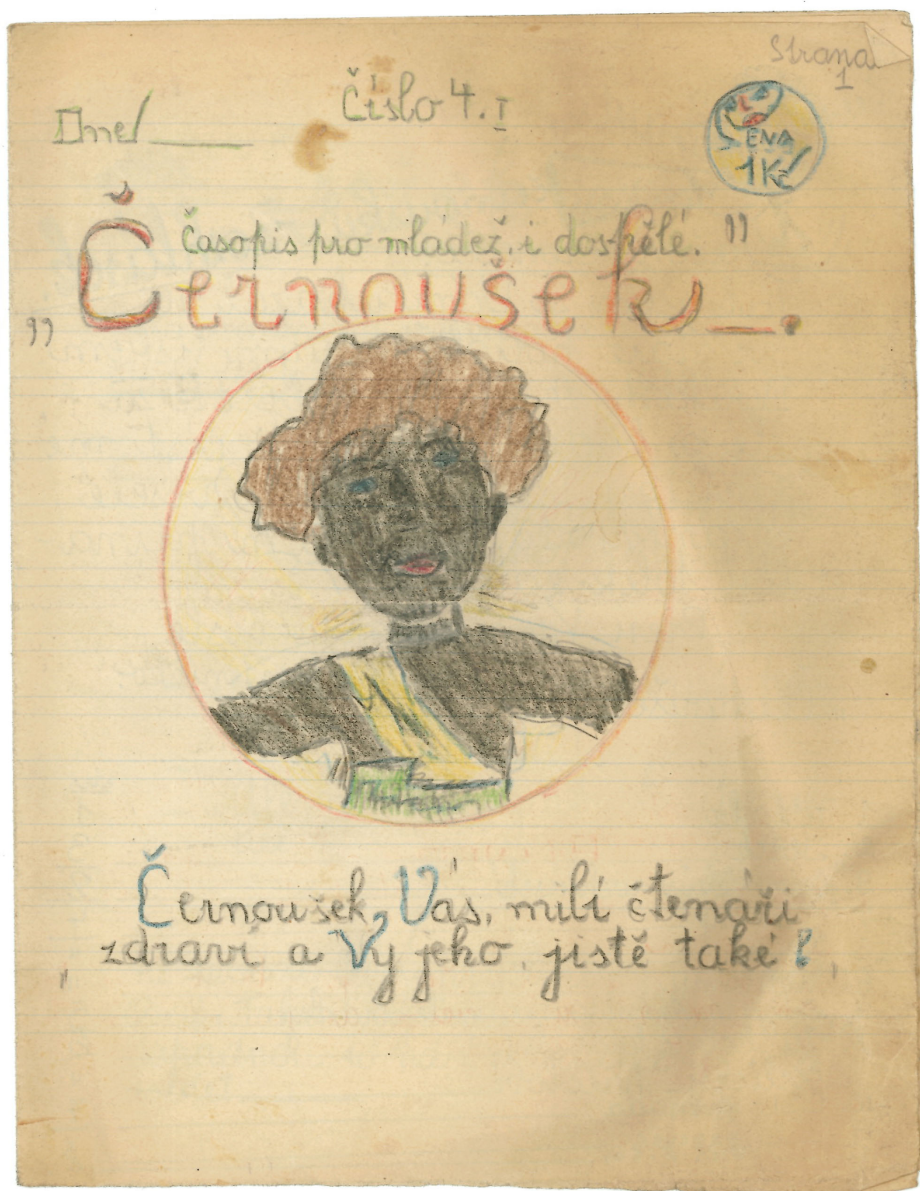 Strana
1
Číslo 4. I
Dne
CENA
1 Kč
Časopis pro mládež. i dospělé.
„Černoušek"
Černoušek Vás, milí čtenáři
zdraví a Vy jeho, jistě také!